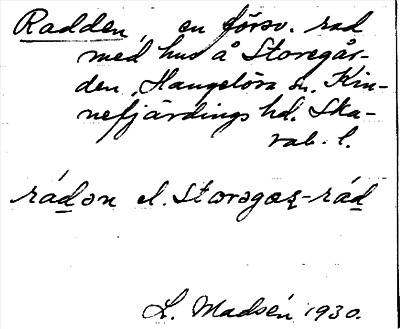 Radden, en försv. rad
med hus å Storegår-
den, Hangelösa sn, Kin-
nefjärdings hd. Ska-
rab. l.
rádən el. Storəgæʀ-rád
L. Madsén 1930.